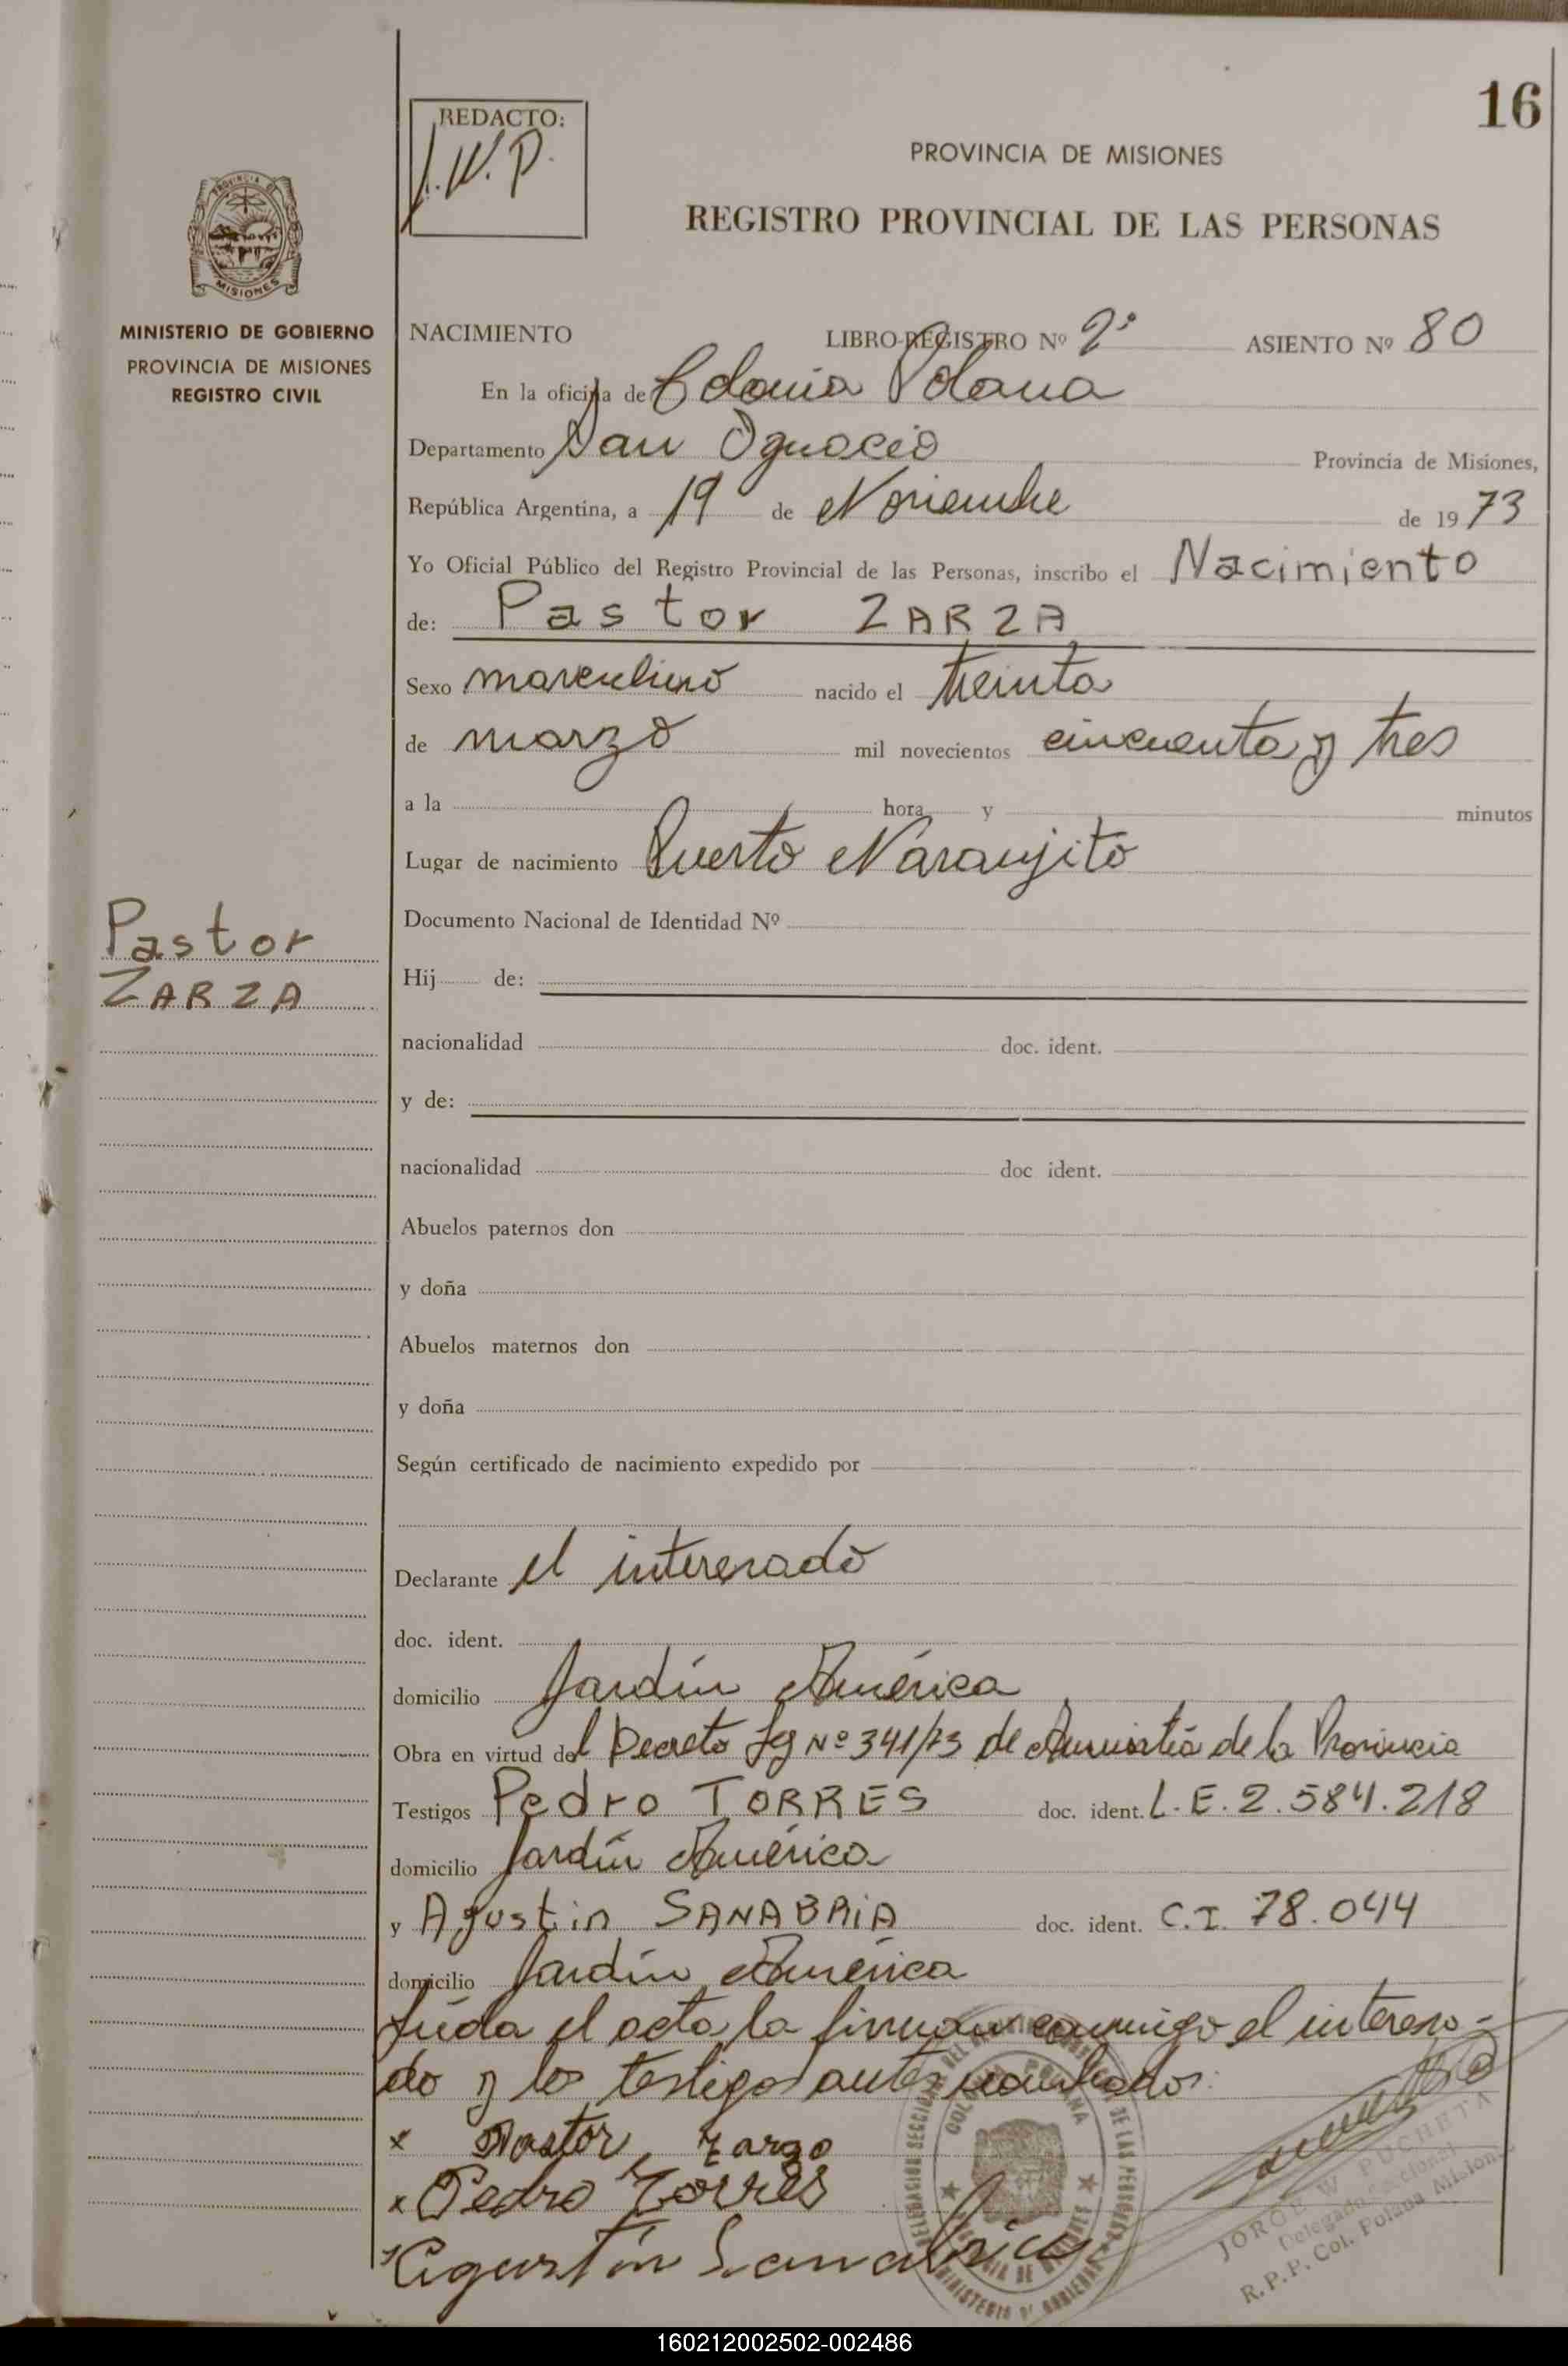 16
REDACTO:
J.W.P.
PROVINCIA DE MISIONES
REGISTRO PROVINCIAL DE LAS PERSONAS
MISIONES
MINISTERIO DE GOBIERNO
PROVINCIA DE MISIONES
REGISTRO CIVIL
NACIMIENTO LIBRO-REGISTRO Nº 2º ASIENTO Nº 80
En la oficina de Colonia Polana
Departamento San Ignacio Provincia de Misiones,
República Argentina, a 19 de Noviembre de 1973
Yo Oficial Público del Registro Provincial de las Personas, inscribo el Nacimiento
de: Pastor ZARZA
Sexo masculino nacido el treinta
de marzo mil novecientos cincuenta y tres
a la hora y minutos
Lugar de nacimiento Puerto Naranjito
Documento Nacional de Identidad Nº
Pastor
ZARZA
Hij de:
nacionalidad doc. ident.
y de:
nacionalidad doc ident.
Abuelos paternos don
y doña
Abuelos maternos don
y doña
Según certificado de nacimiento expedido por
Declarante el interesado
doc. ident.
domicilio Jardín América
Obra en virtud del Decreto Ley Nº 341/73 de Amnistía de la Provincia
Testigos Pedro TORRES doc. ident. L.E. 2.584.218
domicilio Jardín América
y Agustin SANABRIA doc. ident. C.I. 78.044
domicilio Jardín América
Leída el acta, la firman conmigo el interesa-
do y los testigos antes nombrados:
x Pastor Zarza
x Pedro Torres
x Agustín Sanabria
COLONIA POLANA
JORGE W PUCHETA
Delegado Seccional
R.P.P. Col. Polana Misiones
160212002502-002486